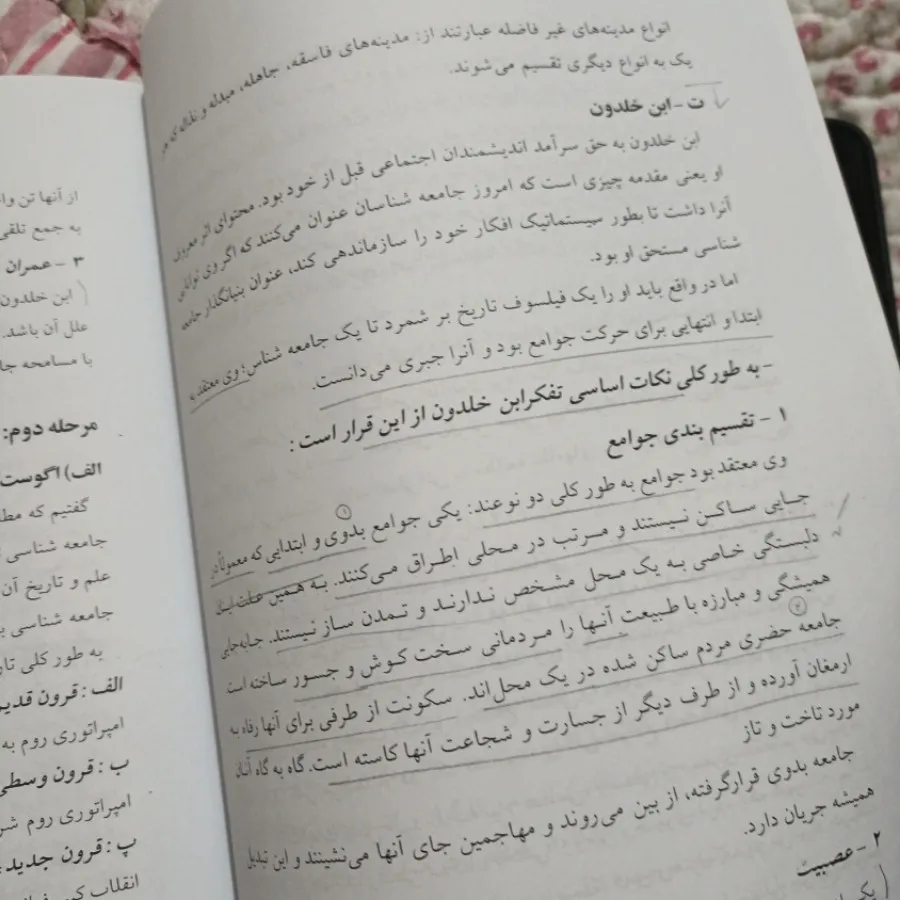 انواع مدینه‌های غیر فاضله عبارتند از: مدینه‌های فاسقه، جاهله، مبدله و
یک به انواع دیگری تقسیم می‌شوند.
ت - ابن خلدون
ابن خلدون به حق سرآمد اندیشمندان اجتماعی قبل از خود بود. محتوای اثر معروف
او یعنی مقدمه چیزی است که امروز جامعه شناسان عنوان می‌کنند که اگر وی توانایی
آنرا داشت تا بطور سیستماتیک افکار خود را سازماندهی کند، عنوان بنیانگذار جامعه
شناسی مستحق او بود.
اما در واقع باید او را یک فیلسوف تاریخ بر شمرد تا یک جامعه شناس؛ وی معتقد به
ابتدا و انتهایی برای حرکت جوامع بود و آنرا جبری می‌دانست.
- به طور کلی نکات اساسی تفکر ابن خلدون از این قرار است:
۱ - تقسیم بندی جوامع
وی معتقد بود جوامع به طور کلی دو نوعند: یکی جوامع بدوی و ابتدایی که معمولاً در
۱
جایی ساکن نیستند و مرتب در محلی اطراق می‌کنند. به همین علت
دلبستگی خاصی به یک محل مشخص ندارند و تمدن ساز نیستند. جابه‌جایی
همیشگی و مبارزه با طبیعت آنها را مردمانی سخت کوش و جسور ساخته است
۲
جامعه حضری مردم ساکن شده در یک محل‌اند. سکونت از طرفی برای آنها رفاه به
ارمغان آورده و از طرف دیگر از جسارت و شجاعت آنها کاسته است. گاه به گاه آنان
مورد تاخت و تاز
جامعه بدوی قرارگرفته، از بین می‌روند و مهاجمین جای آنها می‌نشینند و این تبدیل
همیشه جریان دارد.
۲ - عصبیت
از آنها تن
به جمع تلقی
۳ - عمران
(ابن خلدون
علل آن باشد.
با مسامحه
مرحله دوم:
الف) اگوست
گفتیم که
جامعه شناسی
علم و تاریخ آن
جامعه شناسی
به طور کلی
الف: قرون
امپراتوری روم به
ب: قرون وسطی
امپراتوری روم
پ: قرون جدید:
انقلاب